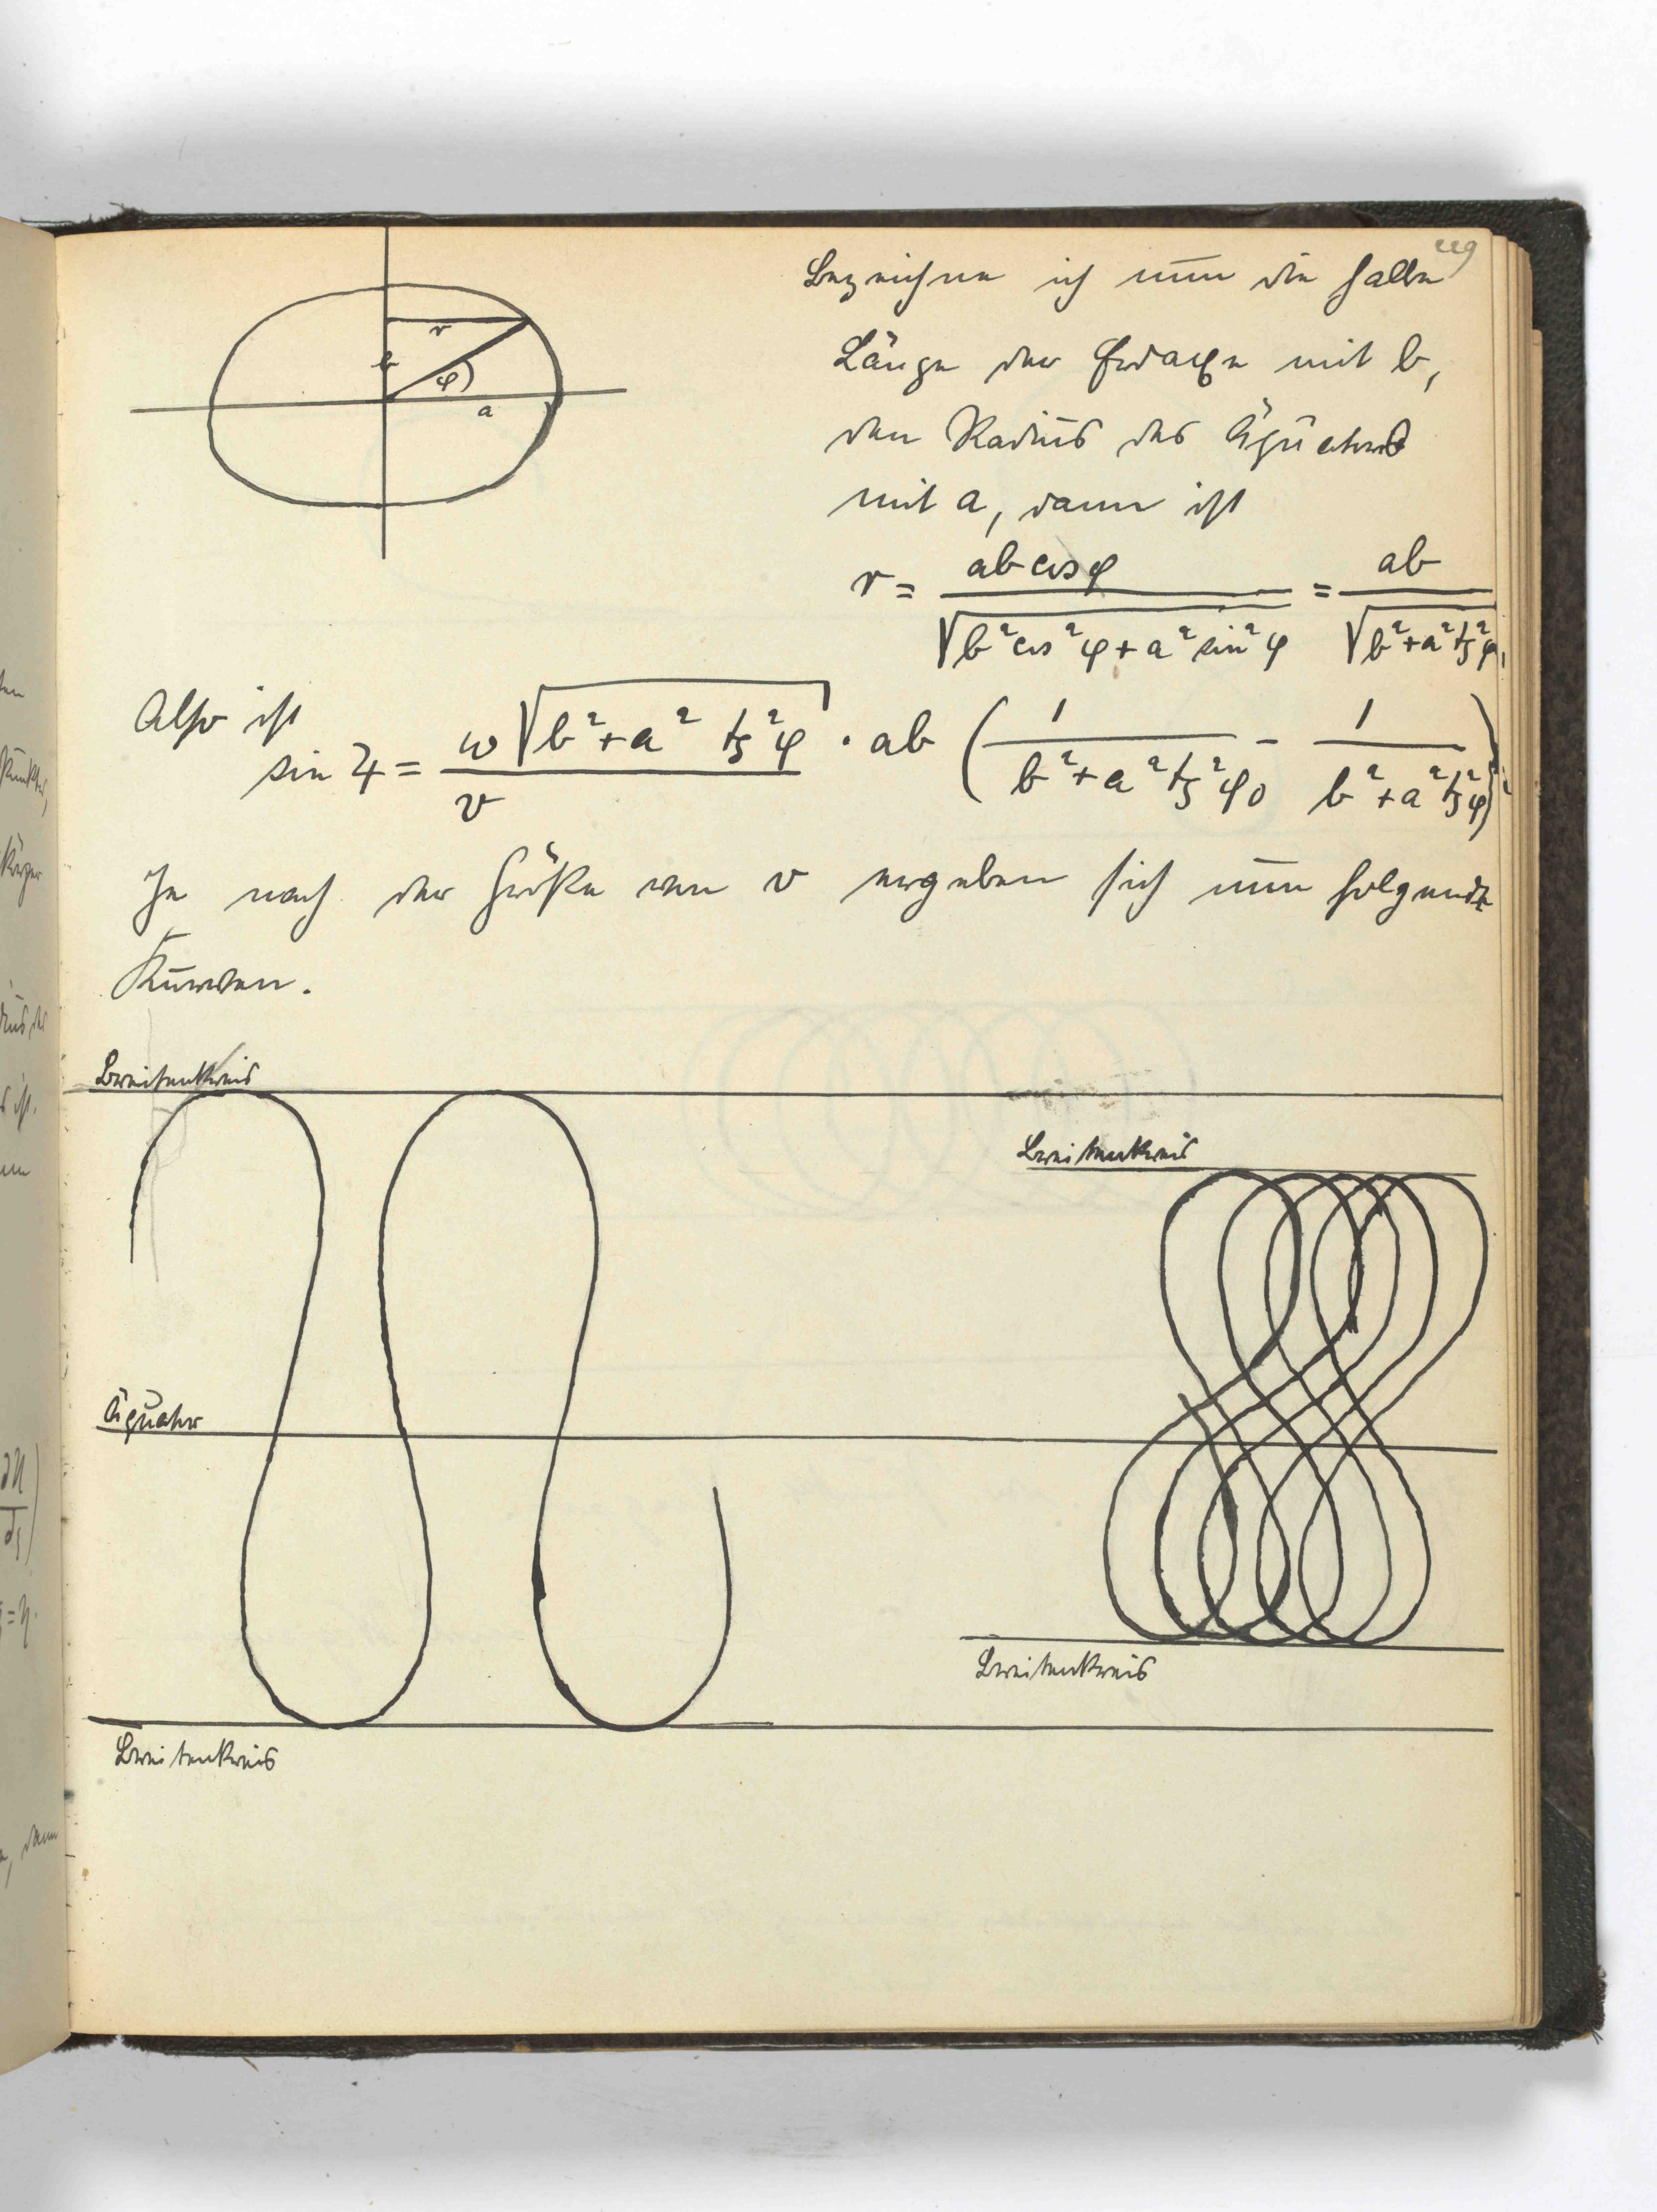 229
Bezeichne ich nun die halbe
Länge der Erdachse mit b,
den Radius des Äquators
mit a, dann ist
r
b
φ
a
r = ab cos φ / √(b² cos² φ + a² sin² φ) = ab / √(b² + a² tg² φ)
Also ist
sin ψ = ω √(b² + a² tg² φ) / v · ab (1 / (b² + a² tg² φ₀) − 1 / (b² + a² tg² φ))
Je nach der Größe von v ergeben sich nun folgende
Kurven.
Breitenkreis
Breitenkreis
Äquator
Breitenkreis
Breitenkreis